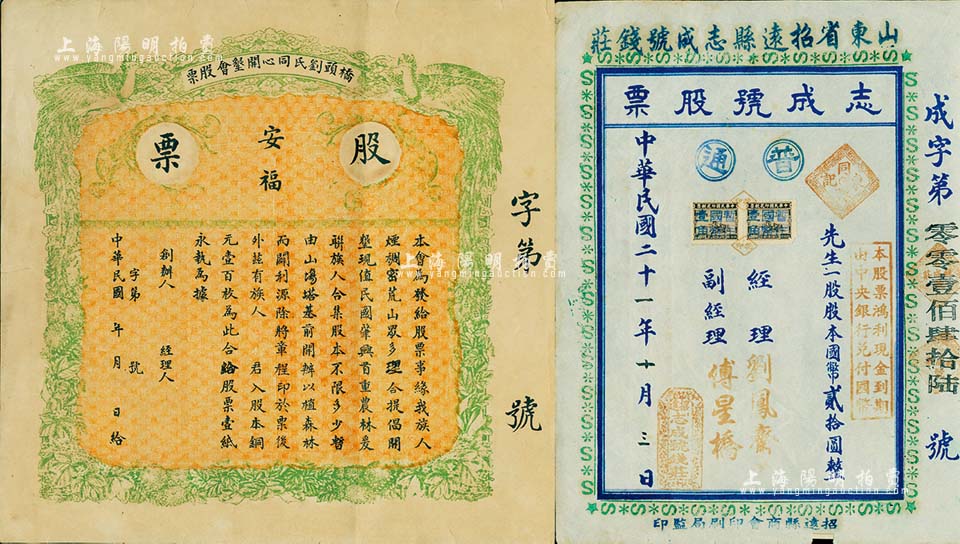 上海陽明拍賣
www.yangmingauction.com
橋頭劉氏同心開墾會股票
股
安福
票
本會為發給股票事緣我族人
煙稠密荒山眾多理合提倡開
墾現值民國肇興首重農林爰
聯族人合集股本不限多少暫
由山場塔基前開辦以植森林
而闢利源除將章程印於票後
外茲有族人 君入股本銅
元壹百枚為此合給股票壹紙
永執為據
創辦人 經理人
字第 號
中華民國 年 月 日給
字第 號
上海陽明拍賣
www.yangmingauction.com
山東省招遠縣志成號錢莊
志成號股票
普通
先生一股股本國幣貳拾圓整
本股票鴻利現金到期
由中央銀行兌付國幣
經理 劉鳳齋
副經理 傅星橋
中華民國二十一年十月三日
成字第零零壹佰肆拾陸號
招遠縣商會印刷局監印
上海陽明拍賣
www.yangmingauction.com